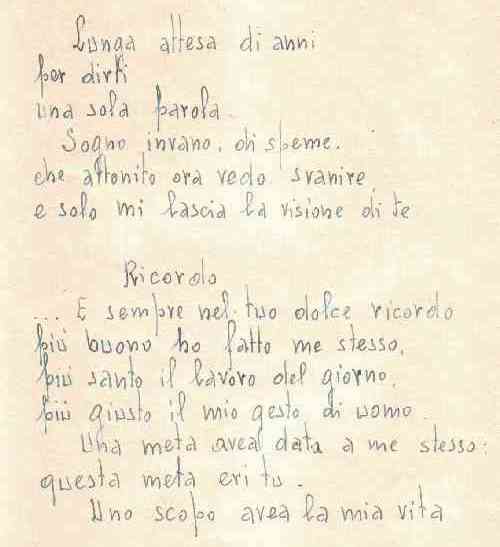 Lunga attesa di anni
per dirti
una sola parola.
Sogno invano, di speme.
che attonito ora vedo svanire,
e solo mi lascia la visione di te
Ricordo
... E sempre nel tuo dolce ricordo
più buono ho fatto me stesso,
più santo il lavoro del giorno,
più giusto il mio gesto di uomo.
Una meta avea data a me stesso:
questa meta eri tu.
Uno scopo avea la mia vita